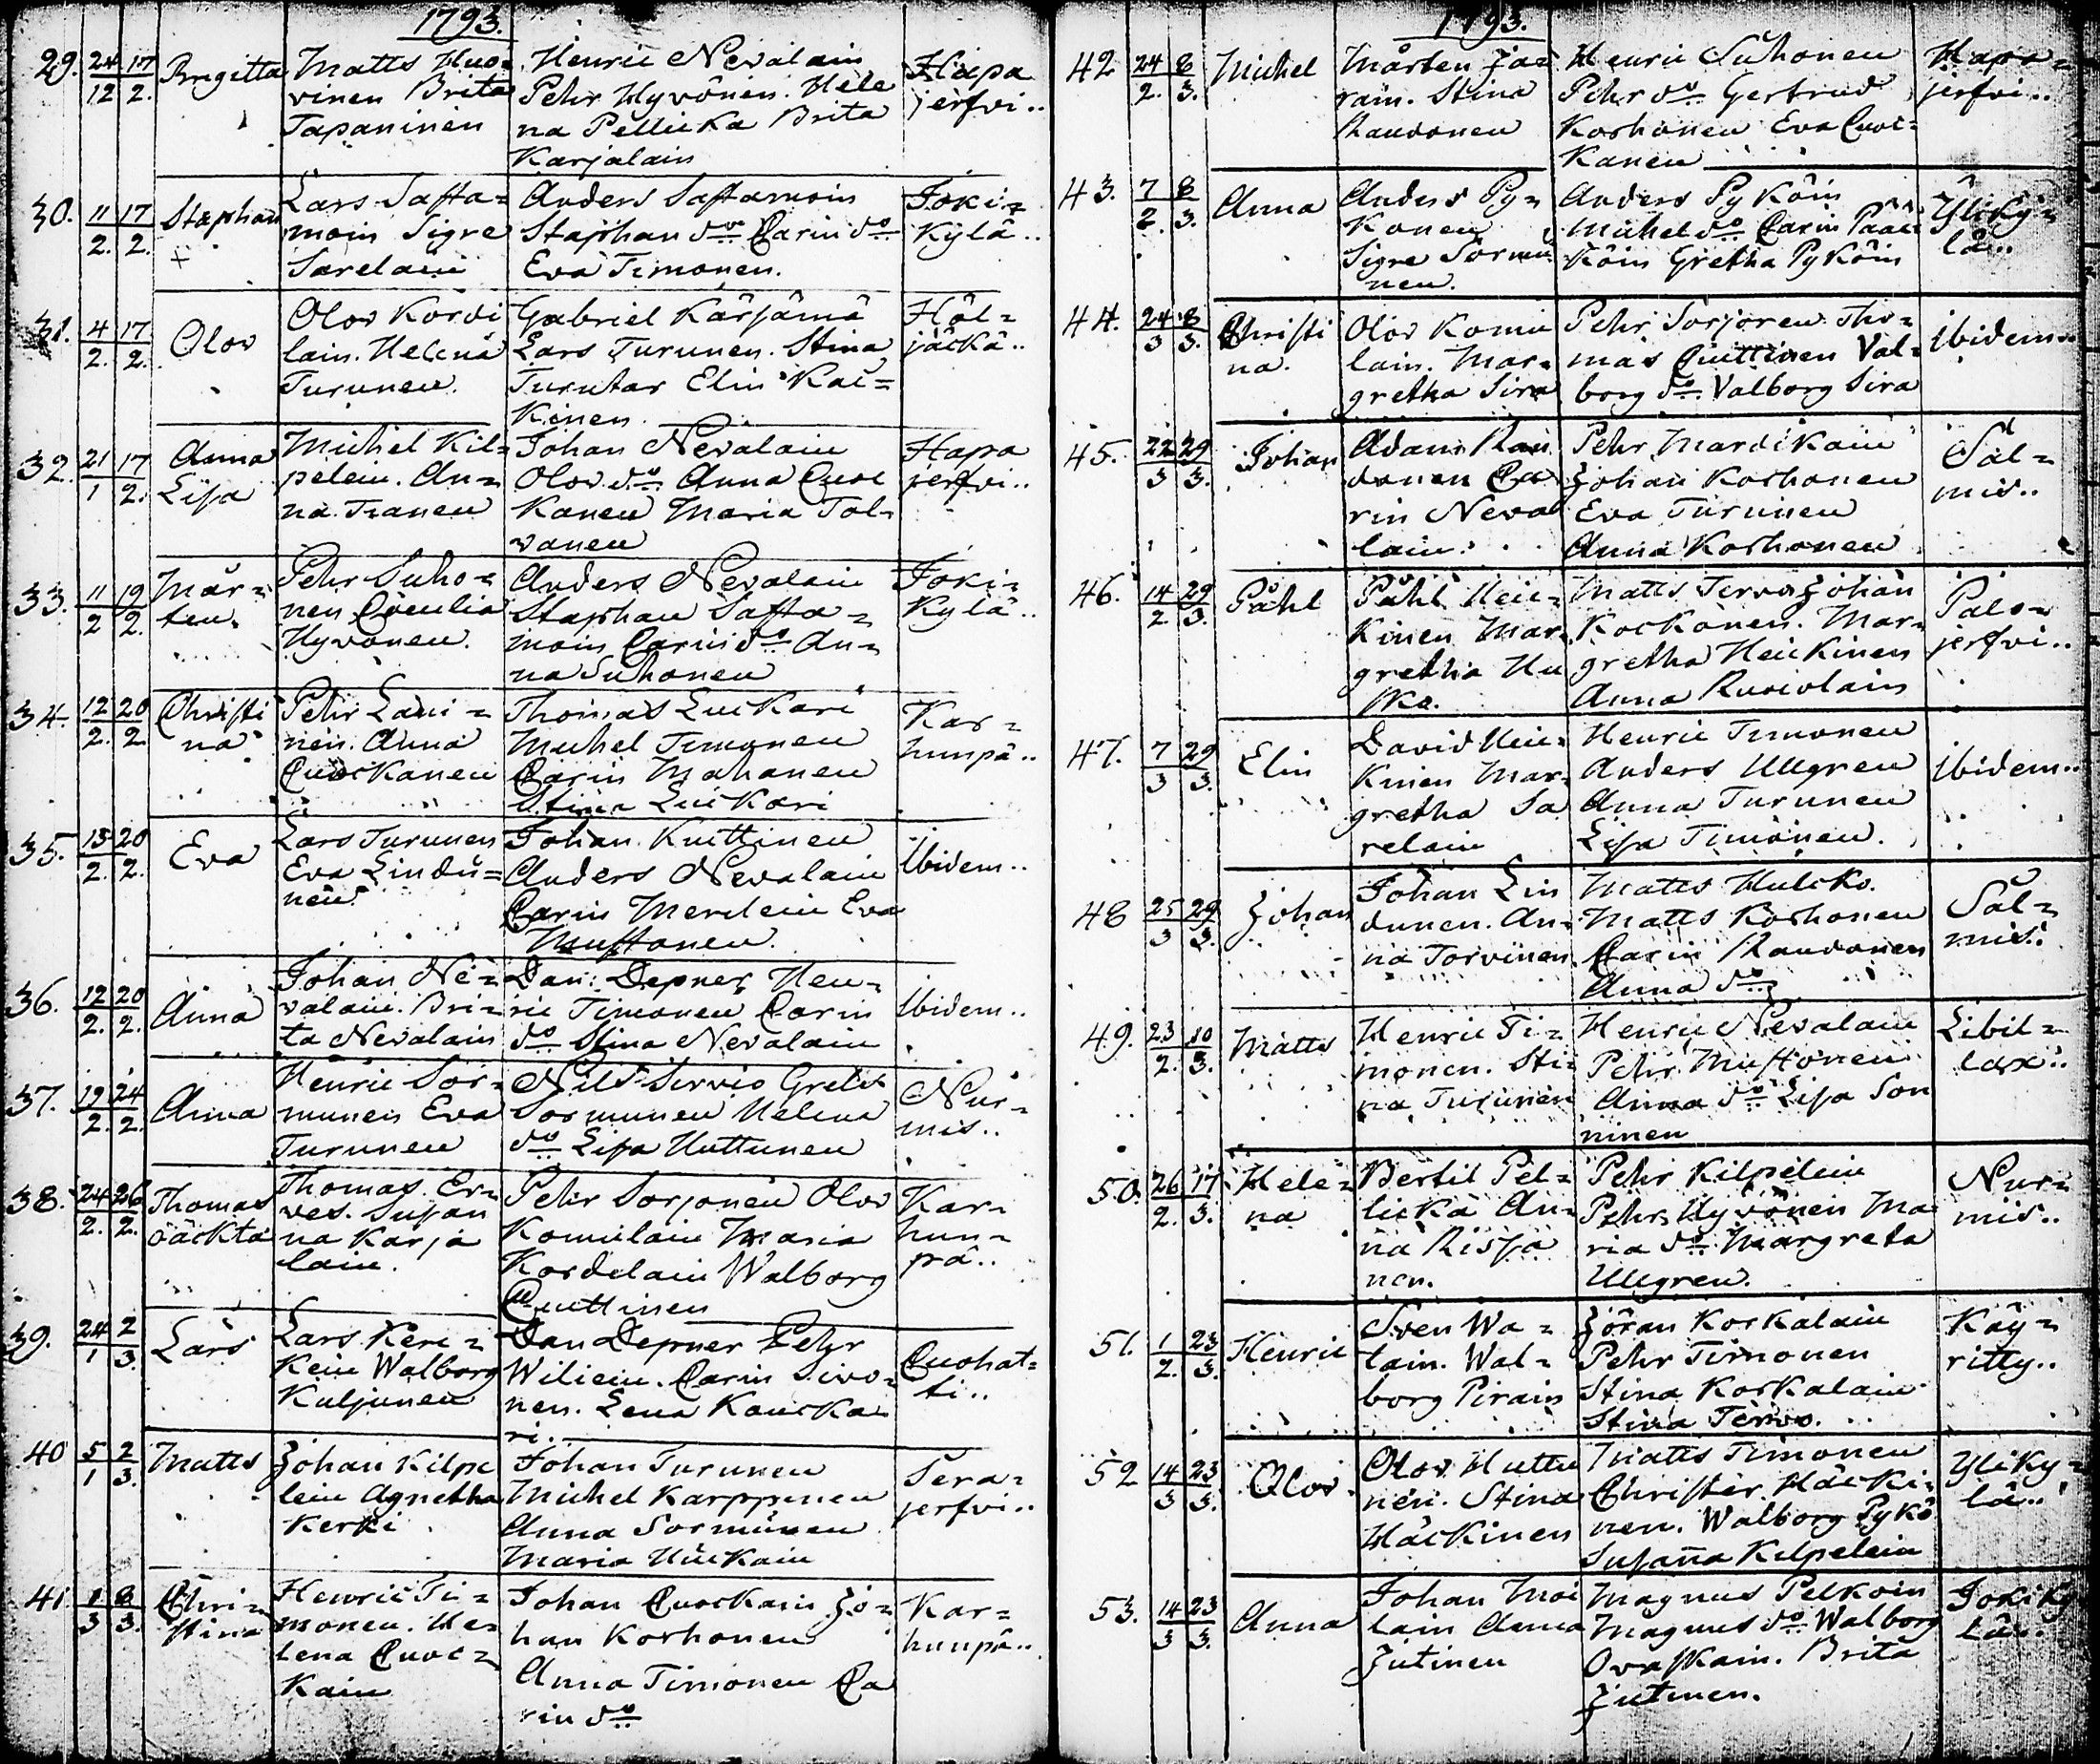 1793.
29. 24/12 17/2. Brigitta Matts Huo=
vinen Brita
Tapaninen
Henric Nevalain
Pehr Hyvönen. Hele
na Pellicka Brita
Karjalain
Hapa
jerfvi..
30. 11/2. 17/2. Staphan Lars Safta=
moin Sigre
Sarelain
Anders Saftamoin
Staphan do Carin do
Eva Timonen.
Joki=
kylä..
31. 4/2. 17/2. Olov
Olov Kordi
lain. Helena
Turunen.
Gabriel Kärjämä
Lars Turunen. Stina
Turutar Elin Kai=
kinen
Höl=
jäckä..
32. 21/1 17/2. Anna
Lisa
Michel Kil=
pelein. An=
na Tranen
Johan Nevalain
Olov do Anna Quoc
kanen Maria Tol=
vanen
Hapa
jerfvi..
33. 11/2 19/2. Mår=
ten.
Pehr Suho=
nen Cecilia
Hyvönen.
Anders Nevalain
Staphan Safta=
moin Carin do An=
na Suhonen
Joki=
kylä..
34. 12/2. 20/2 Christi
na
Pehr Laui=
nen. Anna
Quockanen
Thomas Luckari
Michel Timonen
Carin Mahanen
Stina Luckari
Kar=
hunpä..
35. 15/2. 20/2. Eva
Lars Turunen
Eva Lindu=
nen
Johan Kuittinen
Anders Nevalain
Carin Merilein Eva
Mustonen.
Ibidem..
36. 12/2. 20/2. Anna
Johan Ne=
valain. Bri=
ta Nevalain
Dan: Depner Hen=
ric Timonen Carin
do Stina Nevalain
Ibidem..
37. 19/2. 24/2. Anna
Henric Sor=
munen Eva
Turunen
Nils Servio Gret.
Sormunen Helena
do Lisa Huttunen
Nur=
mis..
38. 24/2. 26/2. Thomas
oäckta
Thomas Er=
ves. Susan
na Karja
lain.
Pehr Sorjonen Olov
Komulain Maria
Kordelain Walborg
Quittinen
Kar=
hun=
pä..
39. 24/1 2/3. Lars
Lars Keri=
kein Walborg
Kuljunen
Dan Depner Pehr
Wiliein. Carin Sivo=
nen. Lena Koucka
ri.
Quohat=
ti..
40 5/1 2/3. Matts
Johan Kilpe
lein Agnetha
Kerki
Johan Turunen
Michel Karppinen
Anna Sormunen
Maria Huckain
Pera=
jerfvi..
41 1/3 8/3. Chri=
stina
Henric Ti=
monen. He=
lena Quoc=
kain
Johan Quockain Jo=
han Korhonen
Anna Timonen Ca
rin do
Kar=
hunpä..
1793.
42 24/2. 8/3. Michel
Mårten Jä=
räin. Stina
Raudonen
Henric Suhonen
Pehr do Gertrud
Korhonen Eva Quoc=
kanen
Hapa=
jerfvi..
43. 7/2. 8/3. Anna
Anders Py=
konen
Sigre Sormu
nen.
Anders Pyköin
Michel do Carin Pää=
köin Gretha Pyköin
Yliky=
lä..
44. 24/3 8/3. Christi
na.
Olov Komu
lain. Mar=
gretha Sira
Pehr Sorjoren Tho=
mas Quittinen Val=
borg do Valborg Sira
Ibidem..
45. 22/3 29/3. Johan
Adam Rau
donen Ca
rin Neva
lain.
Pehr Mardikain
Johan Korhonen
Eva Turunen
Anna Korhonen
Sal=
mis..
46. 14/2 29/3. Påhl
Påhl Hei=
kinen Mar=
gretha Hu
ska.
Matts Tervo Johan
Kockonen. Mar=
gretha Heickinen
Anna Ruocolain
Palo=
jerfvi..
47. 7/3 29/3. Elin
David Hei=
kinen Mar=
gretha Sa
relain
Henric Timonen
Anders Ullgren
Anna Turunen
Lisa Timonen.
Ibidem..
48 25/3 29/3. Johan
Johan Lin
dunen. An=
na Torvinen
Matts Hulcko.
Matts Korhonen
Carin Raudonen
Anna do
Sal=
mis.
49. 23/2. 10/3. Matts
Henric Ti=
monen. Sti=
na Turunen
Henric Nevalain
Pehr Mustonen
Anna do Lisa Son
ninen
Libil=
lax..
50. 26/2. 17/3. Hele=
na
Bertil Pel=
licka An=
na Rispa
nen.
Pehr Kilpelein
Pehr Hyvönen Ma
ria do Margreta
Ullgren.
Nur=
mis..
51. 1/2. 23/3. Henric
Sven Wa=
tain. Wal=
borg Pirain
Jöran Korkalain
Pehr Timonen
Stina Korkalain
Stina Tervo.
Käy=
ritty..
52 14/3 23/3. Olov.
Olov Huttu
nen. Stina
Häckinen
Matts Timonen
Christer Häcki=
nen. Walborg Pykö
Susanna Kilpelein
Yliky=
lä..
53. 14/3 23/3. Anna
Johan Moi
lain Anna
Jutinen
Magnus Pelkoin
Magnus do Walborg
Ovaskain. Brita
Jutinen.
Jokiky
lä..